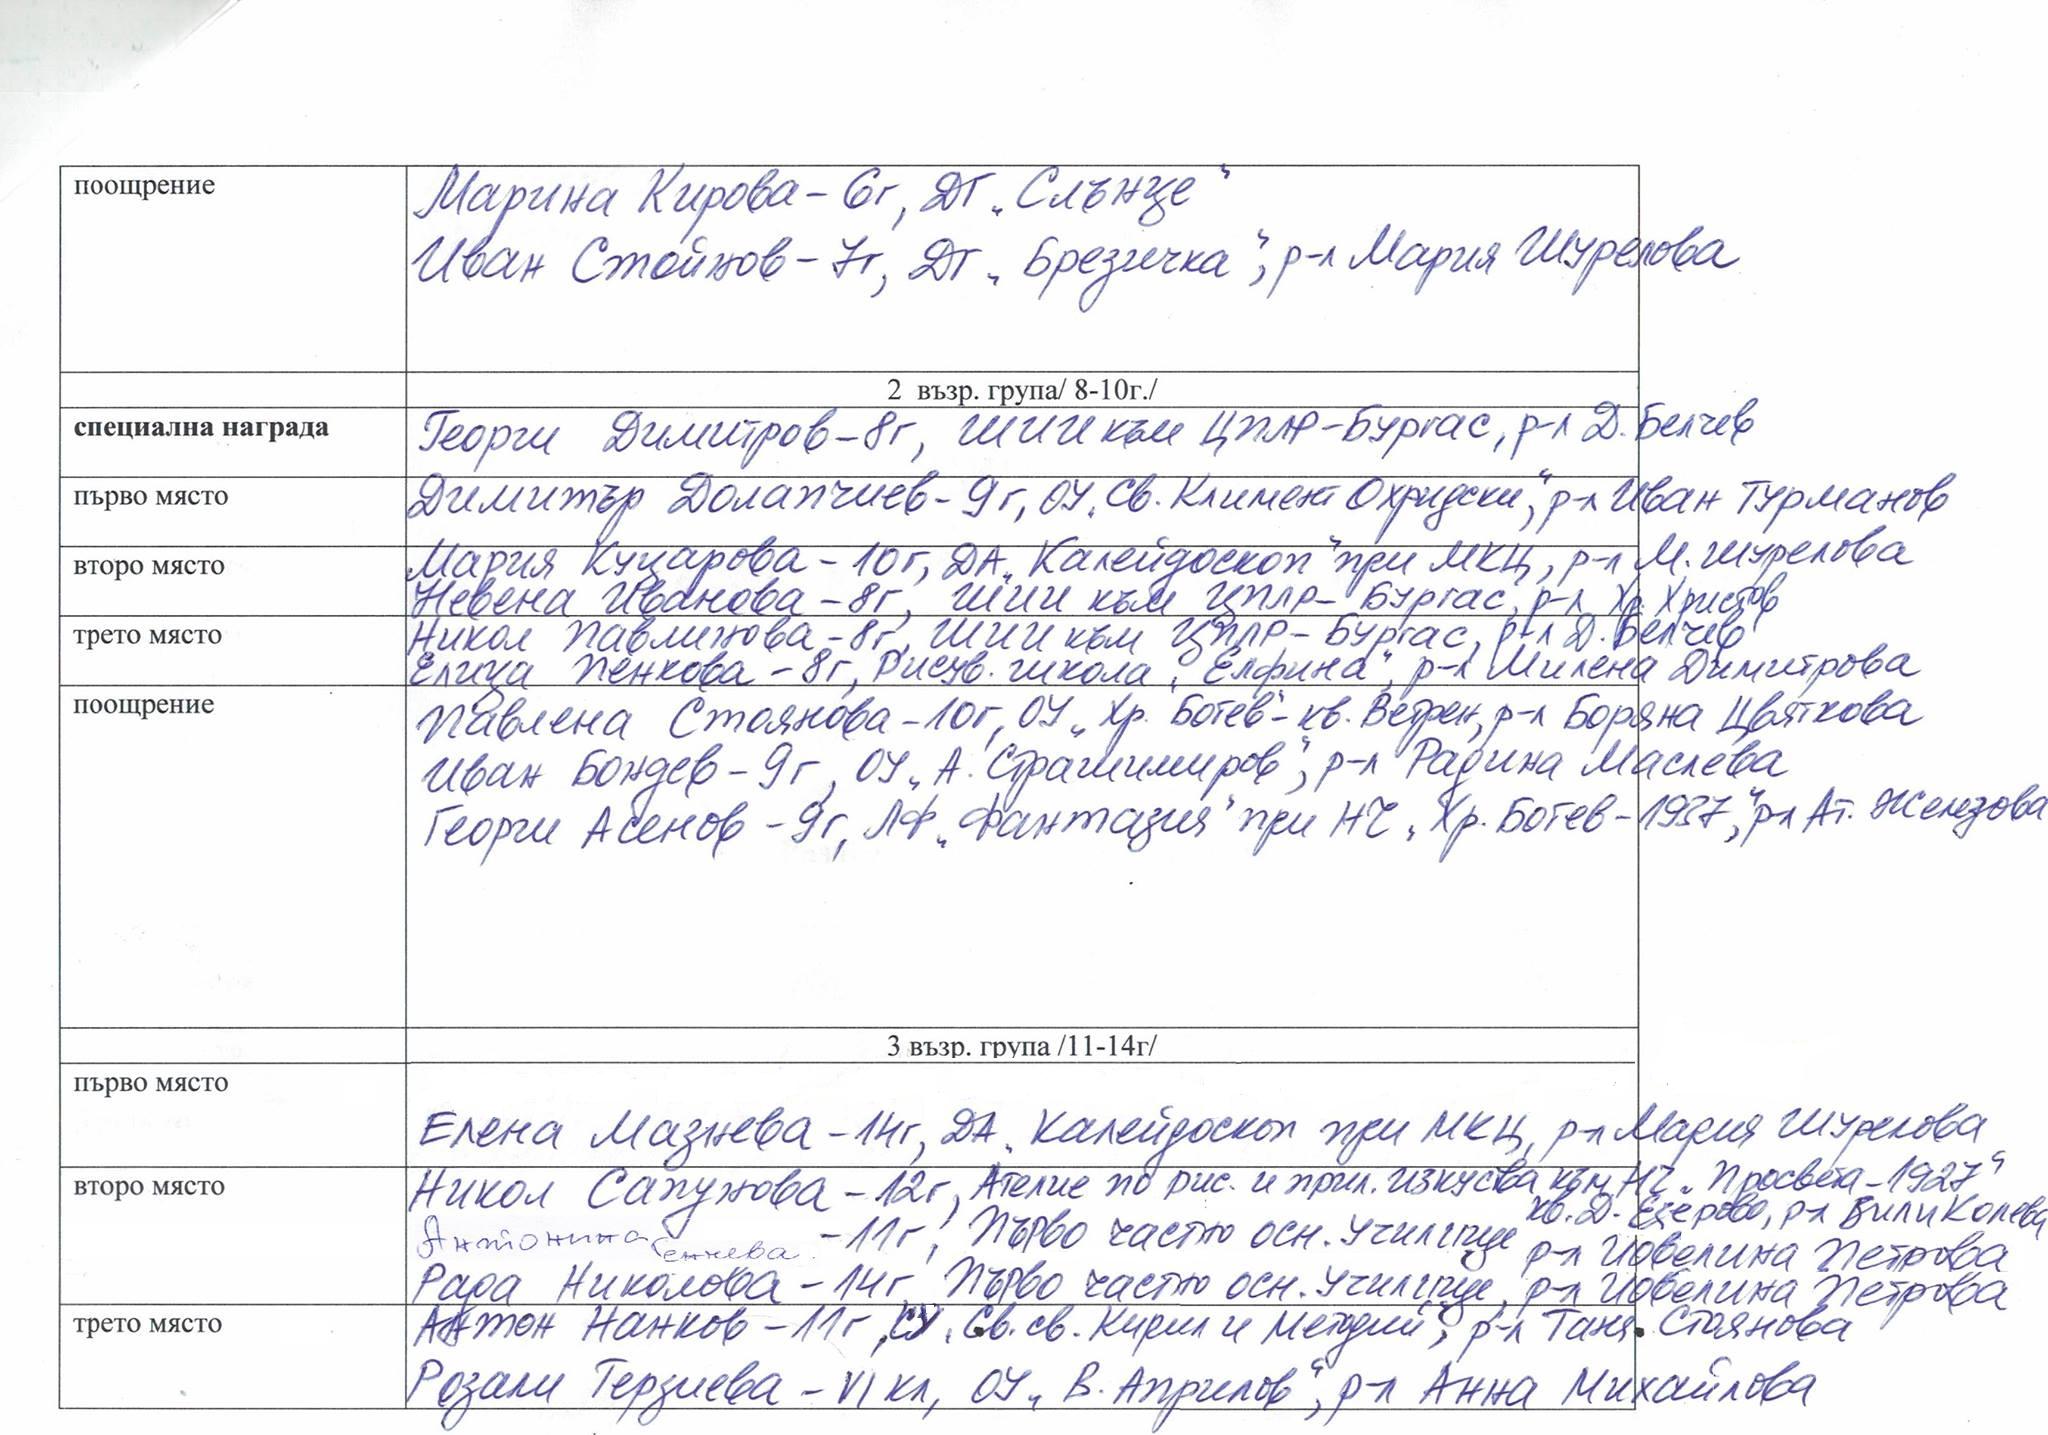 поощрение
Марина Кирова – 6г, ДГ „Слънце"
Иван Стойнов – 7г, ДГ „Брезичка", р-л Мария Шурелова
2 възр. група/ 8-10г./
специална награда
Георги Димитров – 8г, ШИИ към ЦПЛР – Бургас, р-л Д. Белчев
първо място
Димитър Долапчиев – 9г, ОУ „Св. Климент Охридски", р-л Иван Турманов
второ място
Мария Куцарова – 10г, ДА „Калейдоскоп" при МКЦ, р-л М. Шурелова
Невена Иванова – 8г, ШИИ към ЦПЛР – Бургас, р-л Хр. Христов
трето място
Никол Павлинова – 8г, ШИИ към ЦПЛР – Бургас, р-л Д. Белчев
Елица Пенкова – 8г, Рисув. школа „Елфина", р-л Милена Димитрова
поощрение
Павлена Стоянова – 10г, ОУ „Хр. Ботев" – кв. Ветрен, р-л Боряна Цвяткова
Иван Бондев – 9г, ОУ „А. Страшимиров", р-л Радина Маслева
Георги Асенов – 9г, ЛФ „Фантазия" при НЧ „Хр. Ботев – 1937", р-л Ат. Железова
3 възр. група /11-14г/
първо място
Елена Мазнева – 14г, ДА „Калейдоскоп при МКЦ, р-л Мария Шурелова
второ място
Никол Сапунова – 12г, Ателие по рис. и прил. изкуства към НЧ „Просвета – 1927"
кв. Д. Езерово, р-л Вили Колева
Антонина Генчева – 11г, Първо частно осн. училище р-л Йовелина Петрова
Рада Николова – 14г, Първо частно осн. училище, р-л Йовелина Петрова
трето място
Антон Нанков – 11г, СУ „Св. св. Кирил и Методий", р-л Таня Стоянова
Розали Терзиева – VI кл, ОУ „В. Априлов", р-л Анна Михайлова